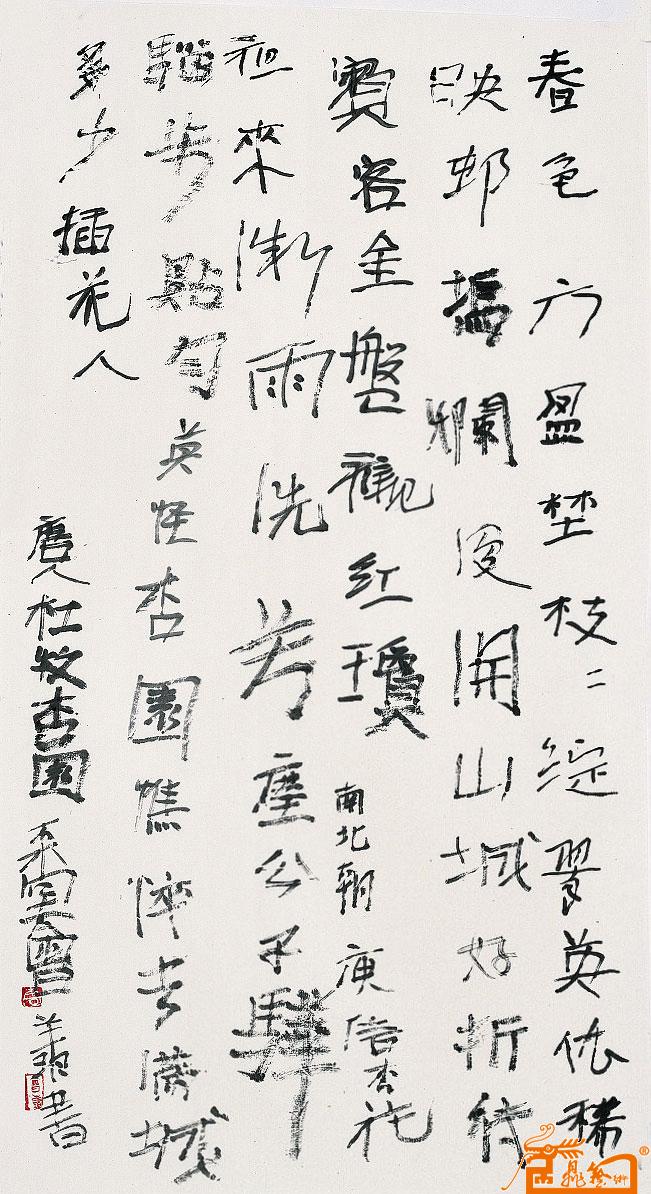 春色方盈埜枝〻綻翠英依稀
映邨塢爛漫開山城好折待
賓客金盤襯紅瓊 南北朝庾信杏花
夜來微雨洗芳塵公子驊
騮步點勻莫怪杏園憔悴去滿城
多少插花人
唐人杜牧杏園 書